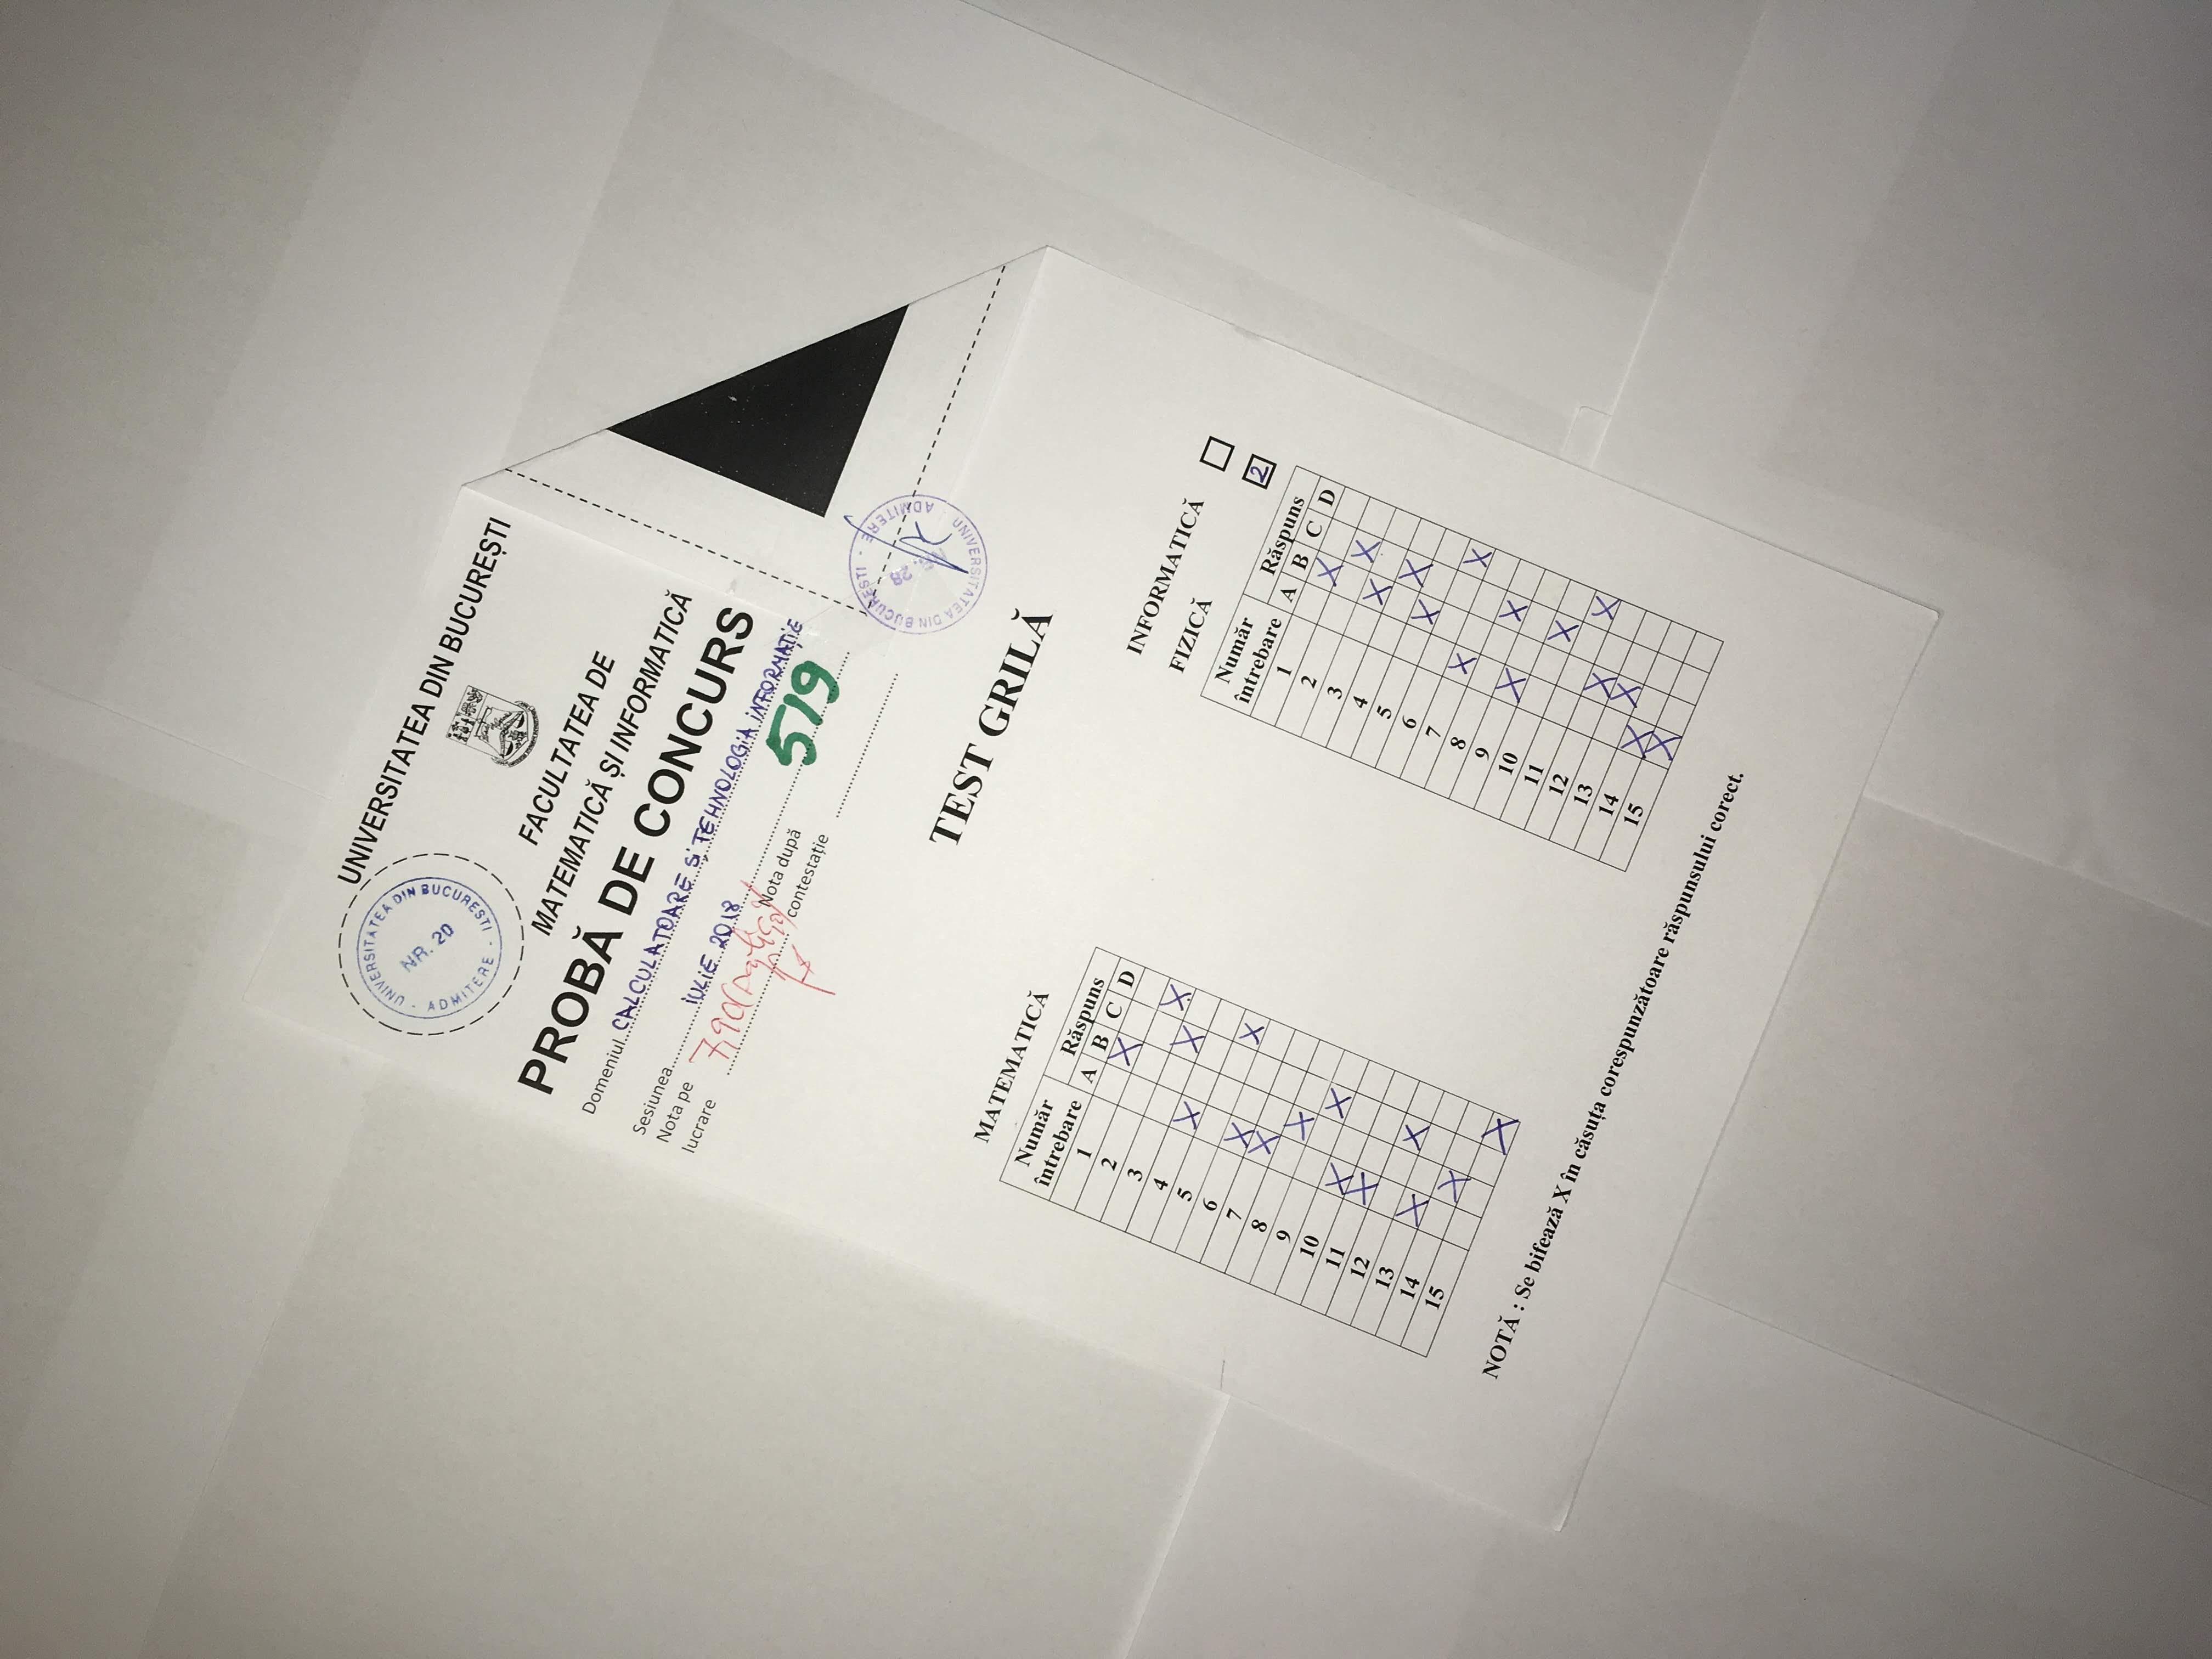 UNIVERSITATEA DIN BUCUREȘTI
UNIVERSITATEA DIN BUCUREȘTI - ADMITERE -
NR. 20
FACULTATEA DE
MATEMATICĂ ȘI INFORMATICĂ
PROBĂ DE CONCURS
Domeniul CALCULATOARE ȘI TEHNOLOGIA INFORMAȚIE
Sesiunea IULIE 2018
Nota pe
lucrare 7,90
Nota după
contestație
519
UNIVERSITATEA DIN BUCUREȘTI - ADMITERE
28
TEST GRILĂ
MATEMATICĂ
Număr întrebare Răspuns
A B C D
1 X
2 X
3 X
4 X
5 X
6 X
7 X
8 X
9 X
10 X
11 X
12 X
13 X
14 X
15 X
INFORMATICĂ
FIZICĂ 2
Număr întrebare Răspuns
A B C D
1 X
2 X
3 X
4 X
5 X
6 X
7 X
8 X
9 X
10 X
11 X
12 X
13 X
14 X
15 X
NOTĂ : Se bifează X în căsuța corespunzătoare răspunsului corect.